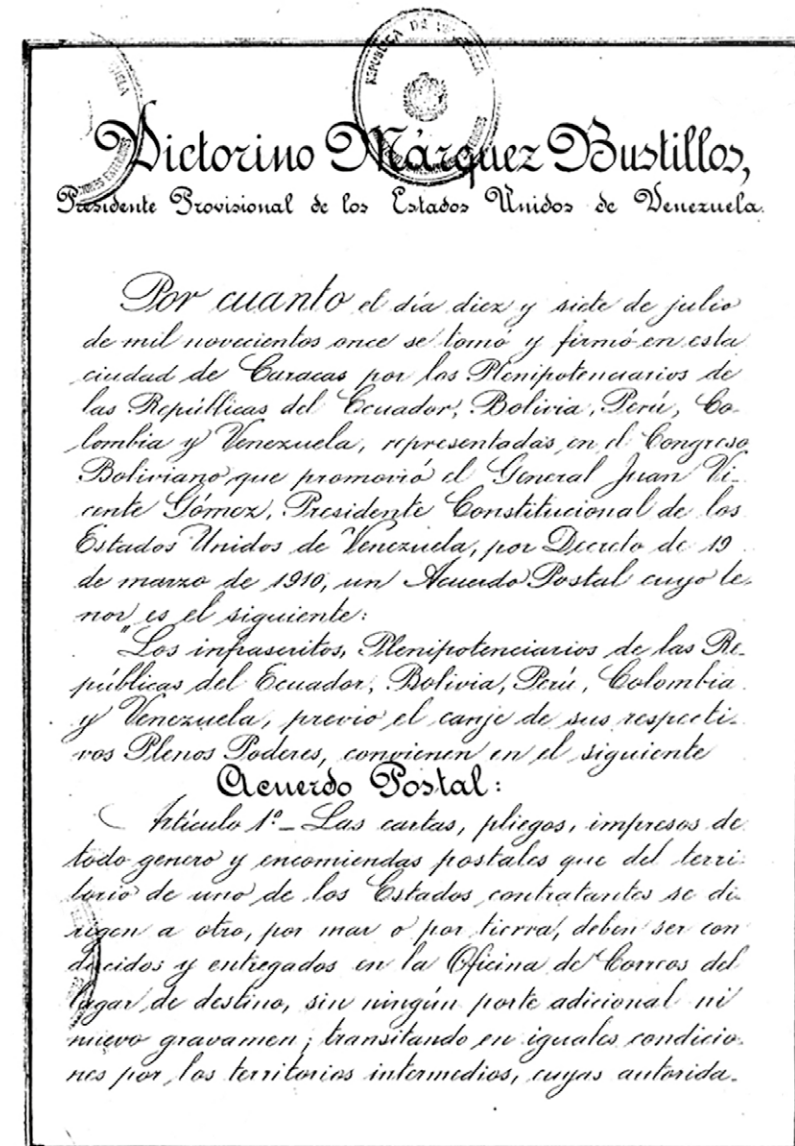 REPUBLICA DE VENEZUELA
Victorino Márquez Bustillos,
Presidente Provisional de los Estados Unidos de Venezuela.
Por cuanto el día diez y siete de julio
de mil novecientos once se tomó y firmó en esta
ciudad de Caracas por los Plenipotenciarios de
las Repúblicas del Ecuador, Bolivia, Perú, Co-
lombia y Venezuela, representadas en el Congreso
Boliviano que promovió el General Juan Vi-
cente Gómez, Presidente Constitucional de los
Estados Unidos de Venezuela, por Decreto de 19
de marzo de 1910, un Acuerdo Postal cuyo te-
nor es el siguiente:
"Los infrascritos, Plenipotenciarios de las Re-
públicas del Ecuador, Bolivia, Perú, Colombia
y Venezuela, previo el canje de sus respecti-
vos Plenos Poderes, convienen en el siguiente
Acuerdo Postal:
Artículo 1º - Las cartas, pliegos, impresos de
todo genero y encomiendas postales que del terri-
torio de uno de los Estados contratantes se di-
rigen a otro, por mar o por tierra, deben ser con
ducidos y entregados en la Oficina de Correos del
lugar de destino, sin ningún porte adicional ni
nuevo gravamen; transitando en iguales condicio-
nes por los territorios intermedios, cuyas autorida-